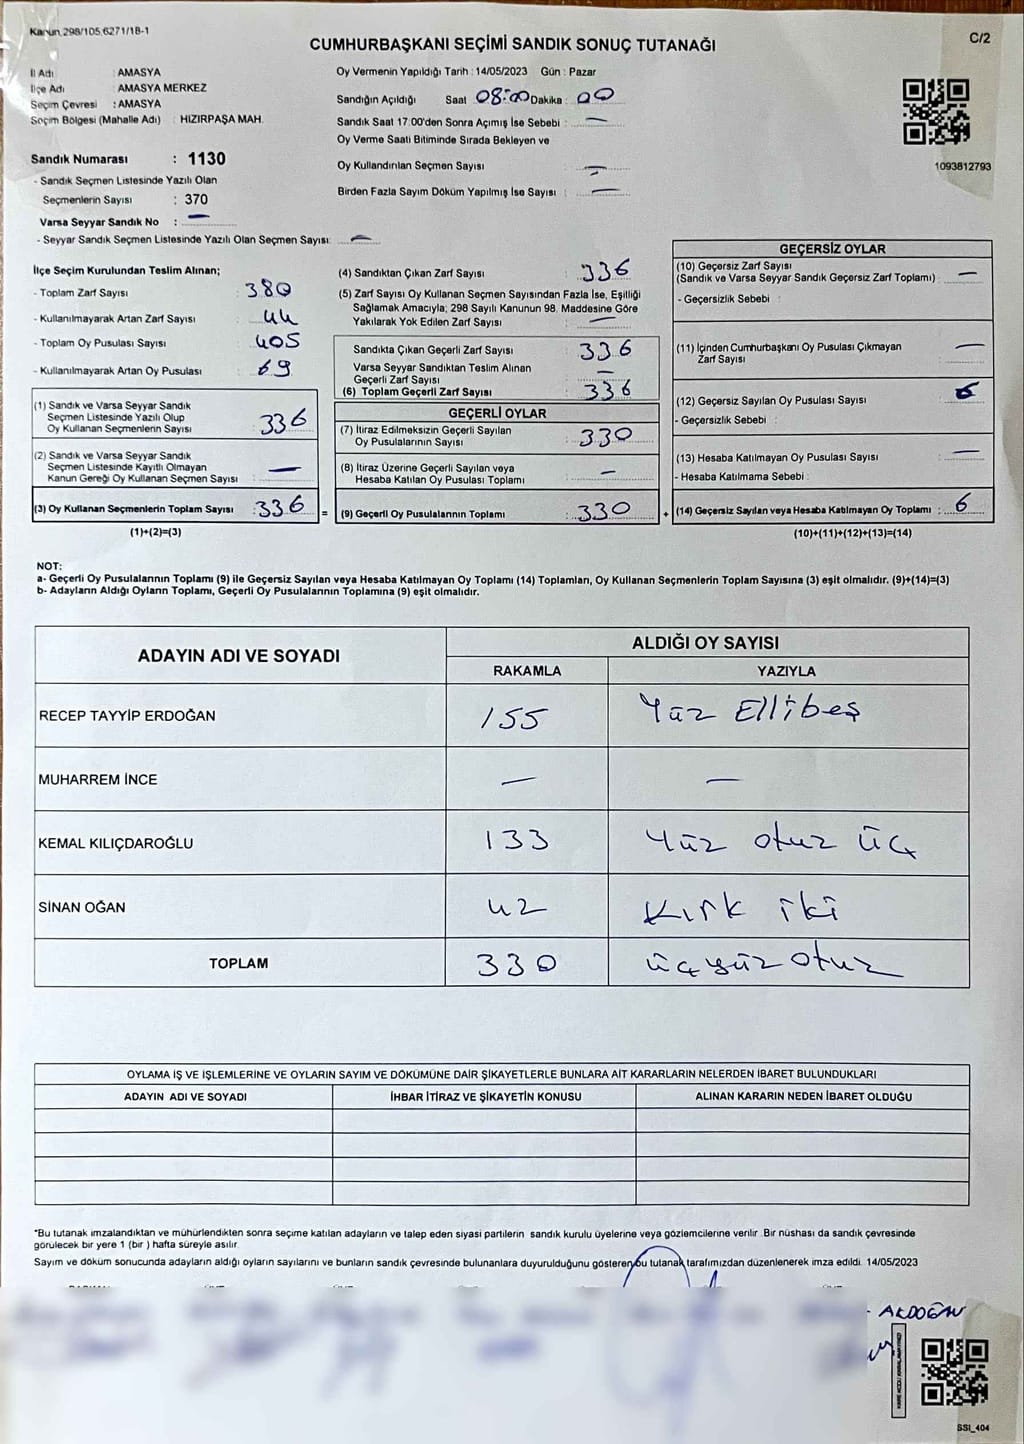 Kanun 298/105,6271/18-1
C/2
CUMHURBAŞKANI SEÇİMİ SANDIK SONUÇ TUTANAĞI
İl Adı : AMASYA
İlçe Adı : AMASYA MERKEZ
Seçim Çevresi : AMASYA
Seçim Bölgesi (Mahalle Adı) : HIZIRPAŞA MAH.
Sandık Numarası : 1130
- Sandık Seçmen Listesinde Yazılı Olan
Seçmenlerin Sayısı : 370
Varsa Seyyar Sandık No : —
- Seyyar Sandık Seçmen Listesinde Yazılı Olan Seçmen Sayısı: —
Oy Vermenin Yapıldığı Tarih : 14/05/2023 Gün : Pazar
Sandığın Açıldığı Saat 08:00 Dakika : 00
Sandık Saat 17:00'den Sonra Açımış İse Sebebi : —
Oy Verme Saati Bitiminde Sırada Bekleyen ve
Oy Kullandırılan Seçmen Sayısı : —
Birden Fazla Sayım Döküm Yapılmış İse Sayısı : —
1093812793
İlçe Seçim Kurulundan Teslim Alınan;
- Toplam Zarf Sayısı : 380
- Kullanılmayarak Artan Zarf Sayısı : 44
- Toplam Oy Pusulası Sayısı : 405
- Kullanılmayarak Artan Oy Pusulası : 69
(1) Sandık ve Varsa Seyyar Sandık
Seçmen Listesinde Yazılı Olup
Oy Kullanan Seçmenlerin Sayısı : 336
(2) Sandık ve Varsa Seyyar Sandık
Seçmen Listesinde Kayıtlı Olmayan
Kanun Gereği Oy Kullanan Seçmen Sayısı : —
(3) Oy Kullanan Seçmenlerin Toplam Sayısı : 336
(1)+(2)=(3)
(4) Sandıktan Çıkan Zarf Sayısı : 336
(5) Zarf Sayısı Oy Kullanan Seçmen Sayısından Fazla İse, Eşitliği
Sağlamak Amacıyla; 298 Sayılı Kanunun 98. Maddesine Göre
Yakılarak Yok Edilen Zarf Sayısı : —
Sandıkta Çıkan Geçerli Zarf Sayısı : 336
Varsa Seyyar Sandıktan Teslim Alınan
Geçerli Zarf Sayısı : —
(6) Toplam Geçerli Zarf Sayısı : 336
GEÇERLİ OYLAR
(7) İtiraz Edilmeksizin Geçerli Sayılan
Oy Pusulalarının Sayısı : 330
(8) İtiraz Üzerine Geçerli Sayılan veya
Hesaba Katılan Oy Pusulası Toplamı : —
= (9) Geçerli Oy Pusulalarının Toplamı : 330
GEÇERSİZ OYLAR
(10) Geçersiz Zarf Sayısı
(Sandık ve Varsa Seyyar Sandık Geçersiz Zarf Toplamı) : —
- Geçersizlik Sebebi :
(11) İçinden Cumhurbaşkanı Oy Pusulası Çıkmayan
Zarf Sayısı : —
(12) Geçersiz Sayılan Oy Pusulası Sayısı : 6
- Geçersizlik Sebebi :
(13) Hesaba Katılmayan Oy Pusulası Sayısı : —
- Hesaba Katılmama Sebebi :
+ (14) Geçersiz Sayılan veya Hesaba Katılmayan Oy Toplamı : 6
(10)+(11)+(12)+(13)=(14)
NOT:
a- Geçerli Oy Pusulalarının Toplamı (9) ile Geçersiz Sayılan veya Hesaba Katılmayan Oy Toplamı (14) Toplamları, Oy Kullanan Seçmenlerin Toplam Sayısına (3) eşit olmalıdır. (9)+(14)=(3)
b- Adayların Aldığı Oyların Toplamı, Geçerli Oy Pusulalarının Toplamına (9) eşit olmalıdır.
ADAYIN ADI VE SOYADI
ALDIĞI OY SAYISI
RAKAMLA YAZIYLA
RECEP TAYYİP ERDOĞAN 155 Yüz Ellibeş
MUHARREM İNCE — —
KEMAL KILIÇDAROĞLU 133 Yüz otuz üç
SİNAN OĞAN 42 Kırk iki
TOPLAM 330 üçyüz otuz
OYLAMA İŞ VE İŞLEMLERİNE VE OYLARIN SAYIM VE DÖKÜMÜNE DAİR ŞİKAYETLERLE BUNLARA AİT KARARLARIN NELERDEN İBARET BULUNDUKLARI
ADAYIN ADI VE SOYADI İHBAR İTİRAZ VE ŞİKAYETİN KONUSU ALINAN KARARIN NEDEN İBARET OLDUĞU
*Bu tutanak imzalandıktan ve mühürlendikten sonra seçime katılan adayların ve talep eden siyasi partilerin sandık kurulu üyelerine veya gözlemcilerine verilir. Bir nüshası da sandık çevresinde
görülecek bir yere 1 (bir ) hafta süreyle asılır.
Sayım ve döküm sonucunda adayların aldığı oyların sayılarını ve bunların sandık çevresinde bulunanlara duyurulduğunu gösteren bu tutanak tarafımızdan düzenlenerek imza edildi. 14/05/2023
AKDOĞAN
SSI_404